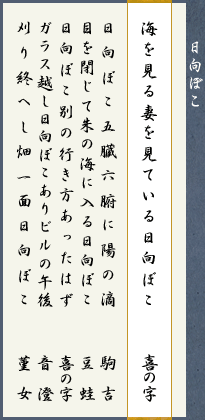 日向ぼこ
海を見る妻を見ている日向ぼこ 喜の字
日向ぼこ五臓六腑に陽の滴 駒吉
目を閉じて朱の海に入る日向ぼこ 豆蛙
日向ぼこ別の行き方あったはず 喜の字
ガラス越し日向ぼこありビルの午後 音澄
刈り終へし畑一面日向ぼこ 菫女